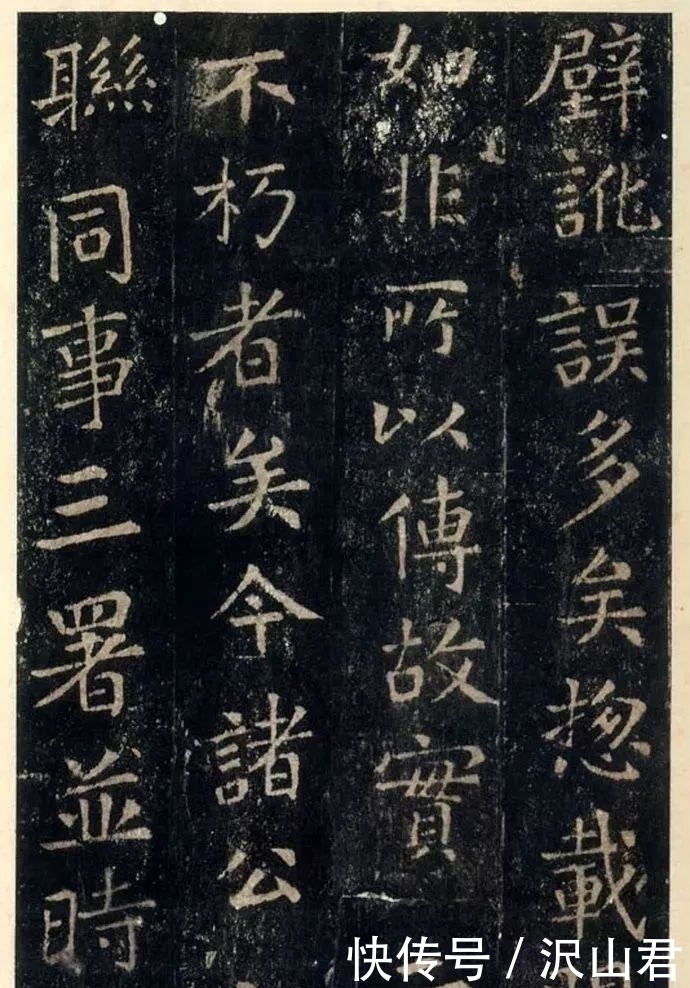 壁訛誤多矣揔載
如非所以傳故實
不朽者矣今諸公
聯同事三署並時
快传号 / 沢山君